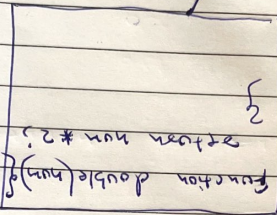 function double(num){
return num * 2;
}